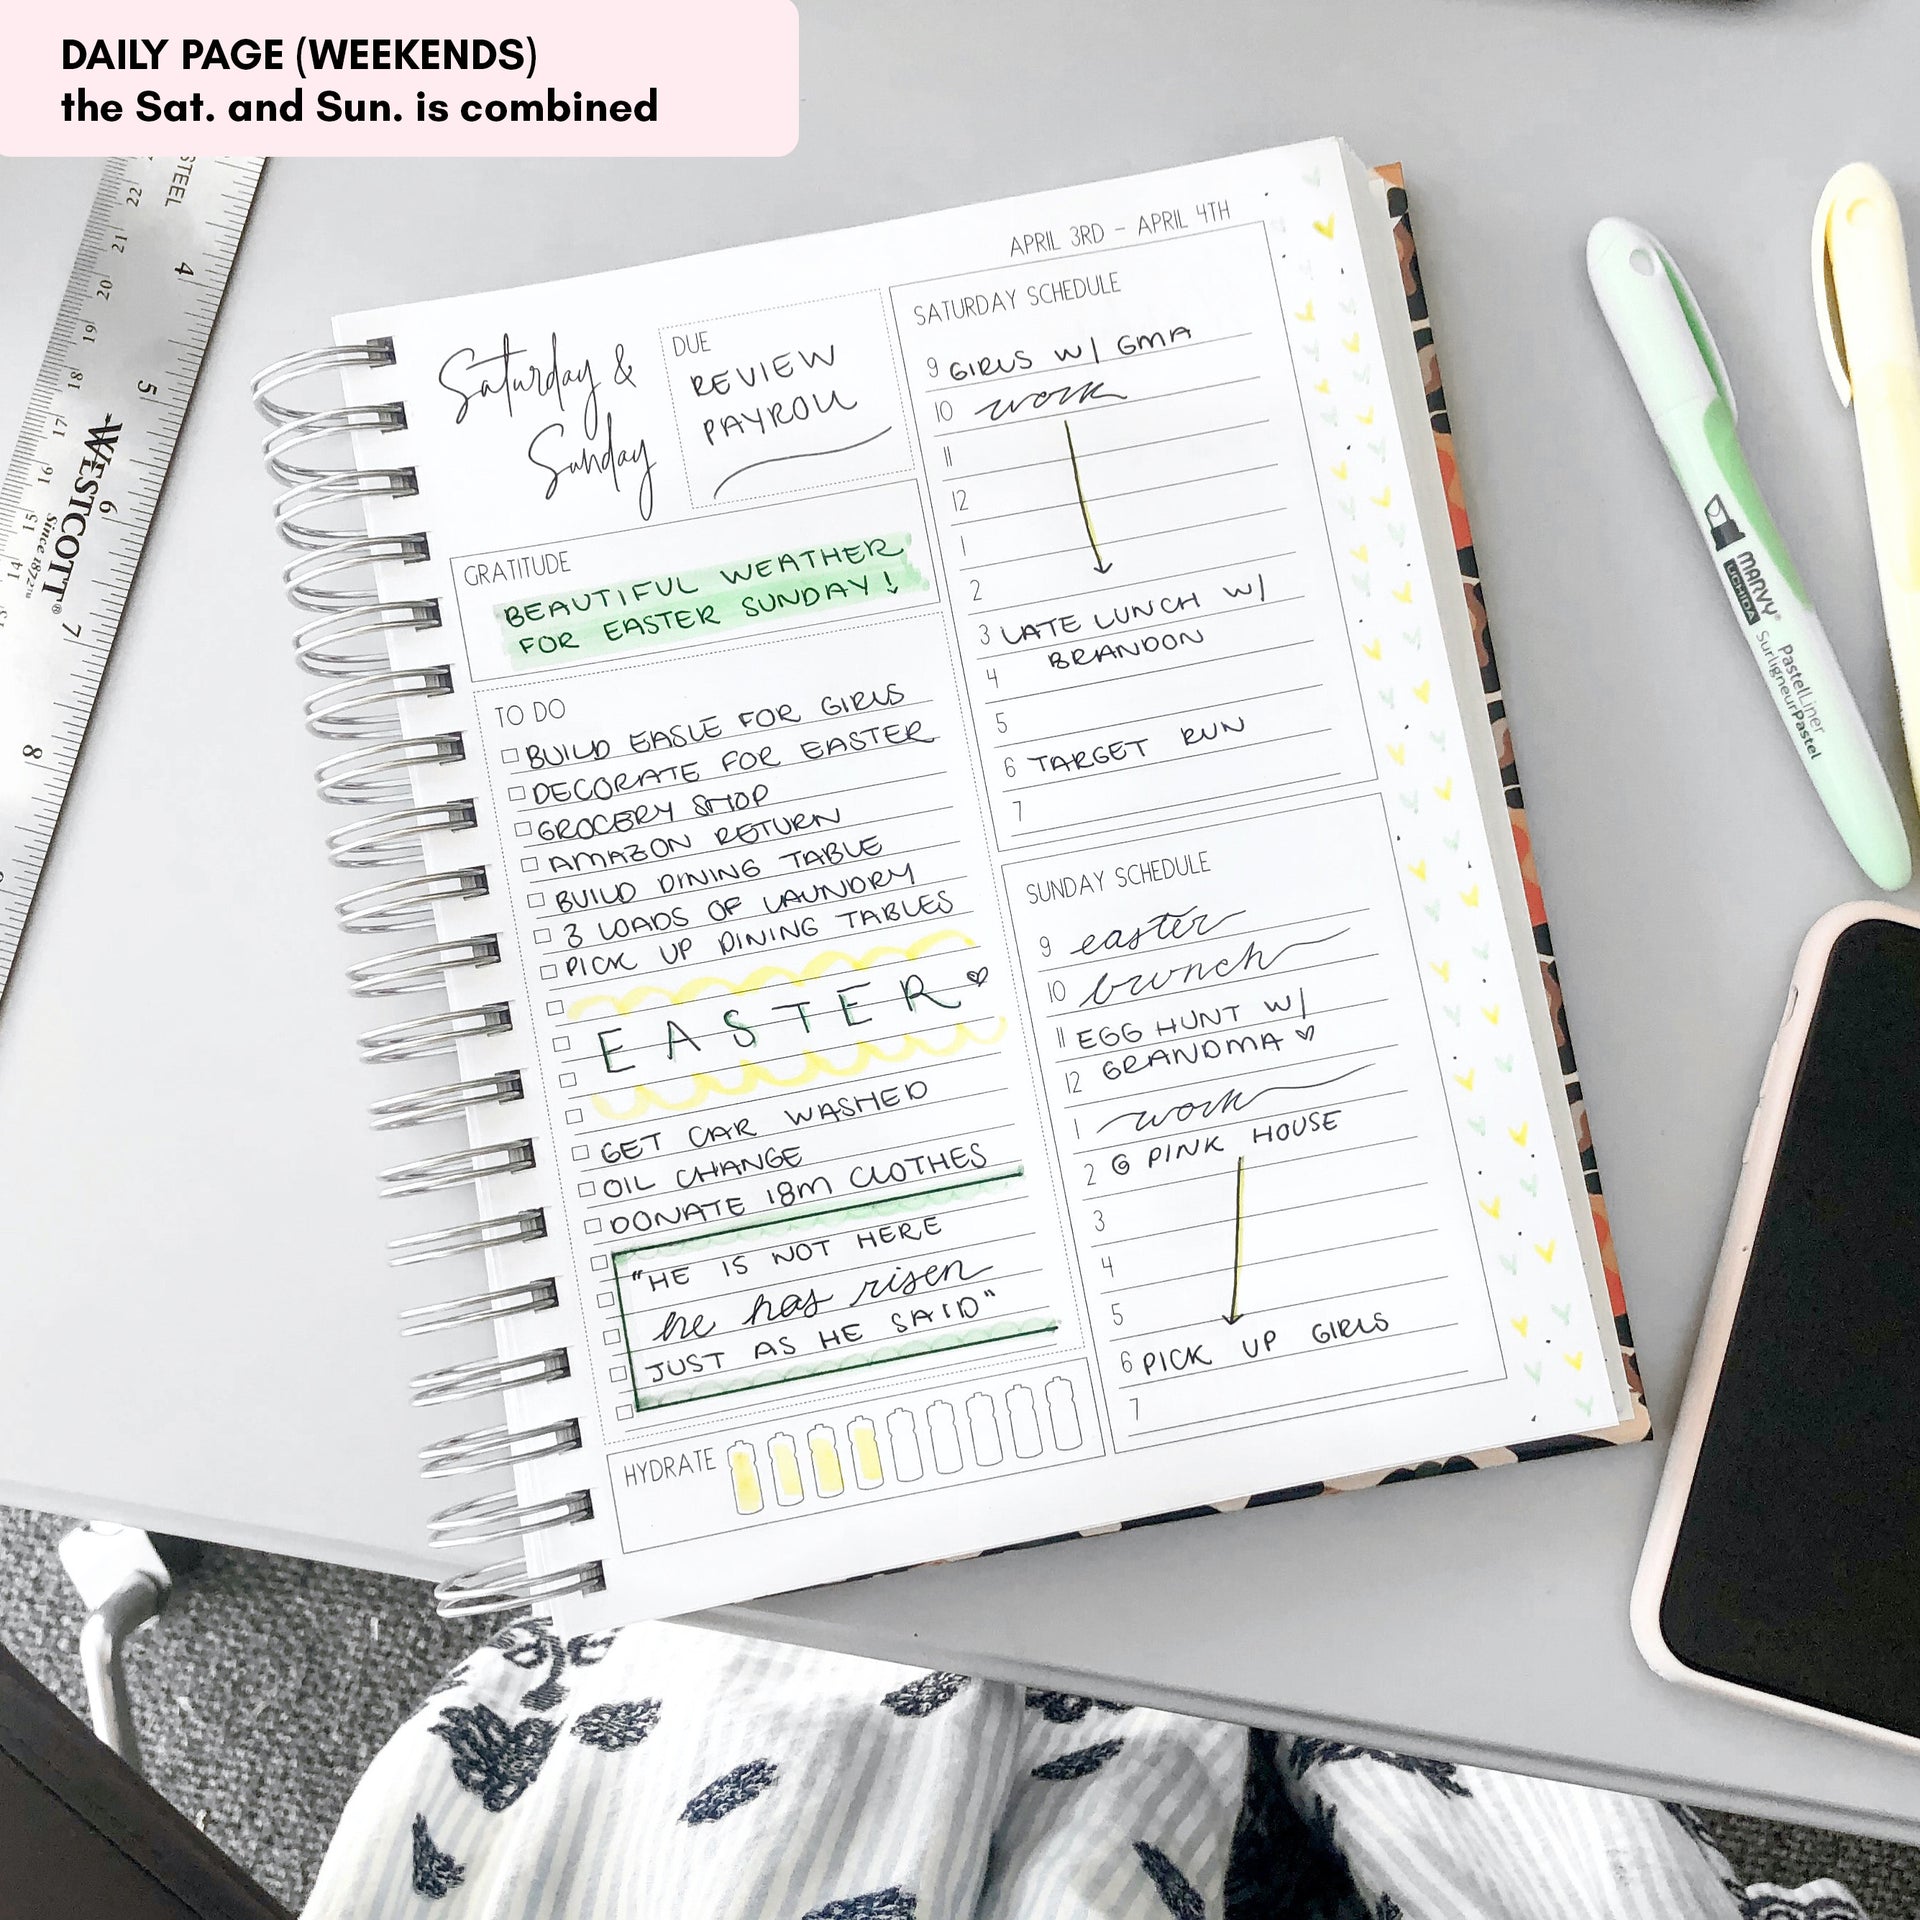 DAILY PAGE (WEEKENDS)
the Sat. and Sun. is combined
STEEL
22
21
20
19
18
17
16
15
14
4
5
6
7
8
WESTCOTT®
Since 1872
APRIL 3RD - APRIL 4TH
Saturday &
Sunday
DUE
REVIEW
PAYROLL
GRATITUDE
BEAUTIFUL WEATHER
FOR EASTER SUNDAY!
TO DO
BUILD EASLE FOR GIRLS
DECORATE FOR EASTER
GROCERY SHOP
AMAZON RETURN
BUILD DINING TABLE
3 LOADS OF LAUNDRY
PICK UP DINING TABLES
EASTER
GET CAR WASHED
OIL CHANGE
DONATE 18M CLOTHES
"HE IS NOT HERE
he has risen
JUST AS HE SAID"
HYDRATE
SATURDAY SCHEDULE
9 GIRLS W/ GMA
10 work
11
12
1
2
3 LATE LUNCH W/
BRANDON
4
5
6 TARGET RUN
7
SUNDAY SCHEDULE
9 easter
10 brunch
11 EGG HUNT W/
12 GRANDMA
1 work
2 @ PINK HOUSE
3
4
5
6 PICK UP GIRLS
7
MARVY®
UCHIDA
PastelLiner
SurligneurPastel